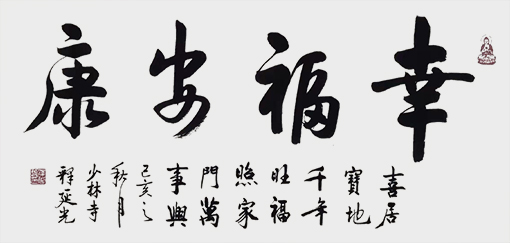 幸福安康
喜居
寶地
千年
旺福
照家
門萬
事興
己亥之
秋月
少林寺
釋延光